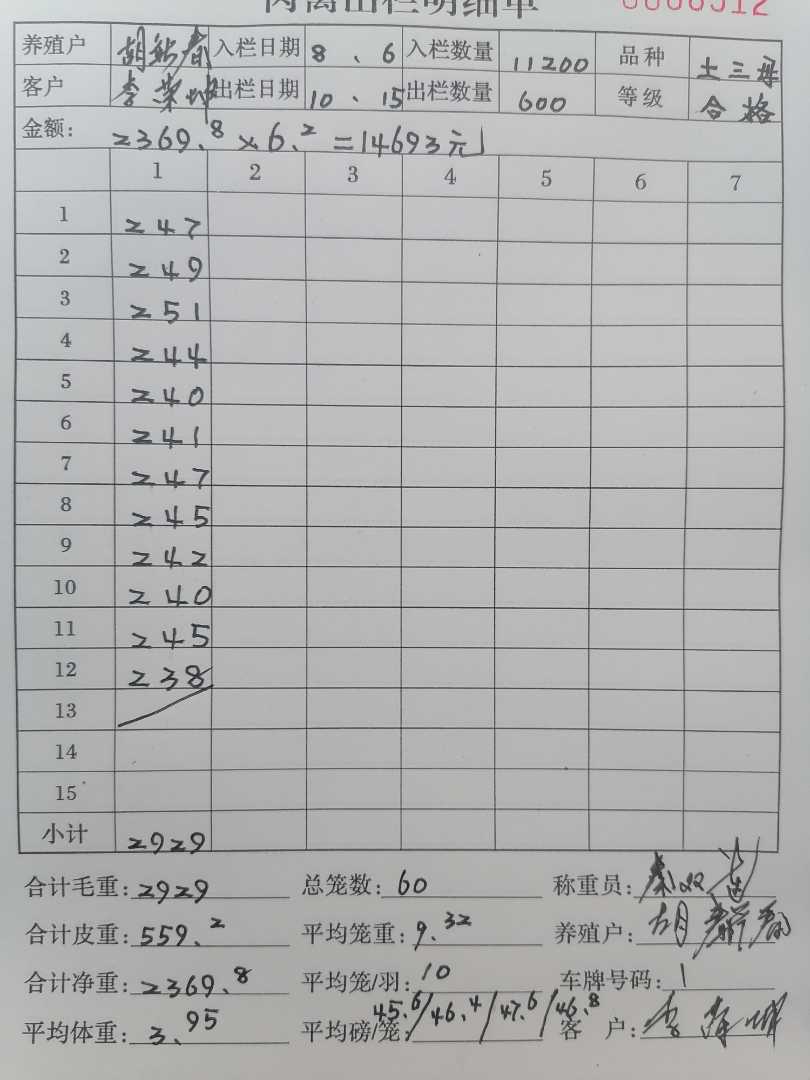 肉禽出栏明细单 0006312
养殖户 胡 春 入栏日期 8、6 入栏数量 11200 品种 土三母
客户 李 坤 出栏日期 10、15 出栏数量 600 等级 合格
金额: 2369.8×6.2=14693元
1 2 3 4 5 6 7
1 247
2 249
3 251
4 244
5 240
6 241
7 247
8 245
9 242
10 240
11 245
12 238
13
14
15
小计 2929
合计毛重: 2929 总笼数: 60 称重员: 秦双
合计皮重: 559.2 平均笼重: 9.32 养殖户: 胡 春
合计净重: 2369.8 平均笼/羽: 10 车牌号码: 1
平均体重: 3.95 平均磅/笼: 45.6/46.4/47.6/46.8 客 户: 李 坤